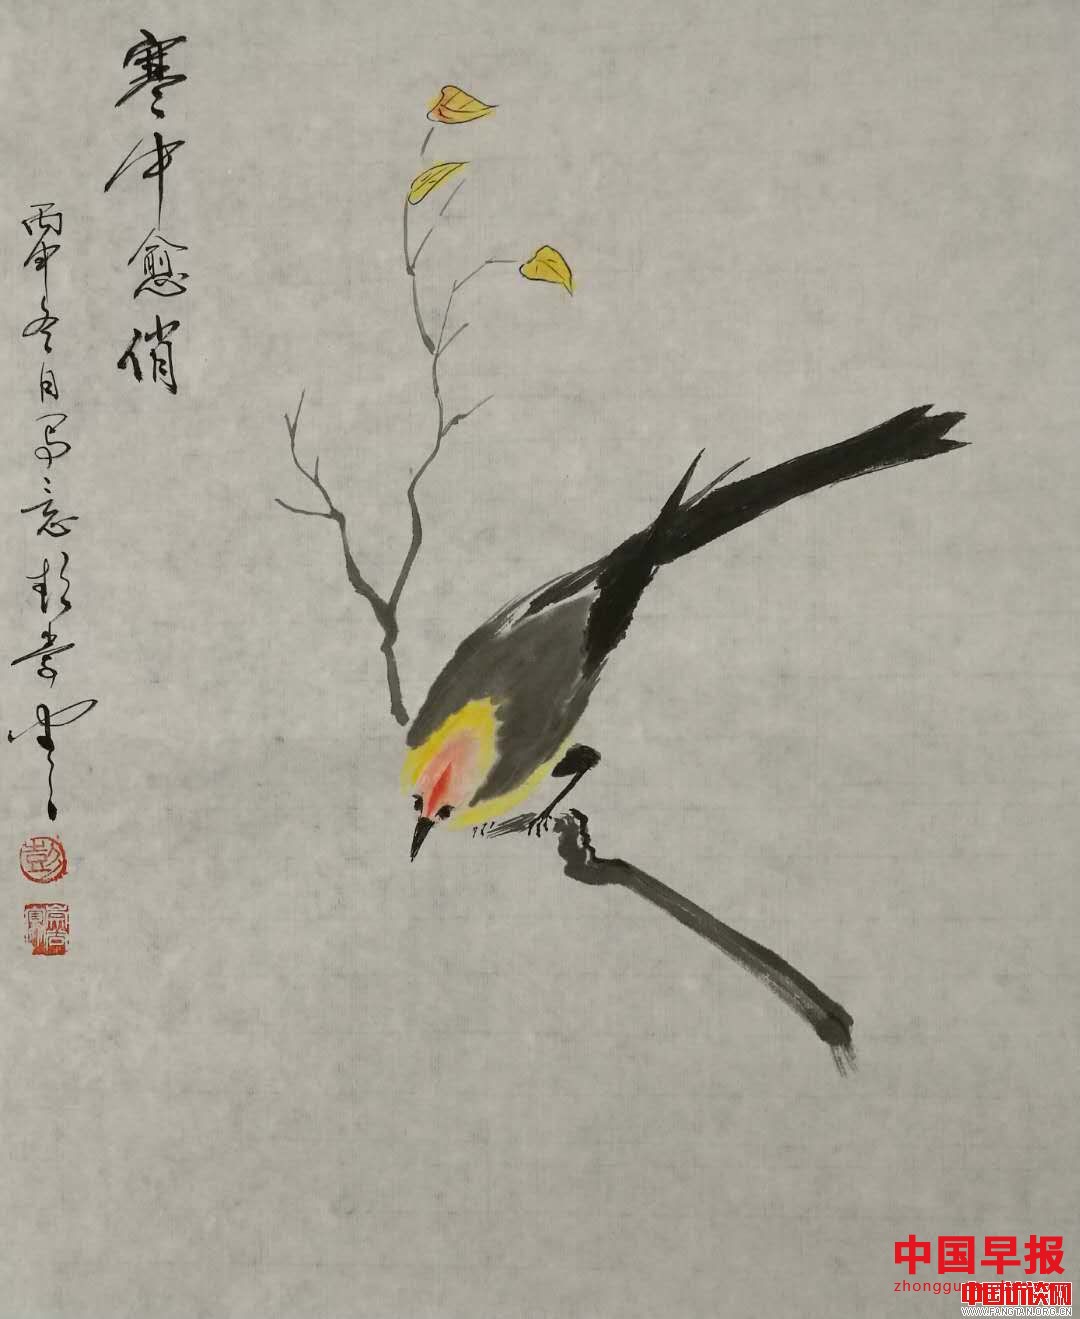 寒中愈俏
丙申冬日写意
中国早报
zhongguo
中国访谈网
WWW.FANGTAN.ORG.CN